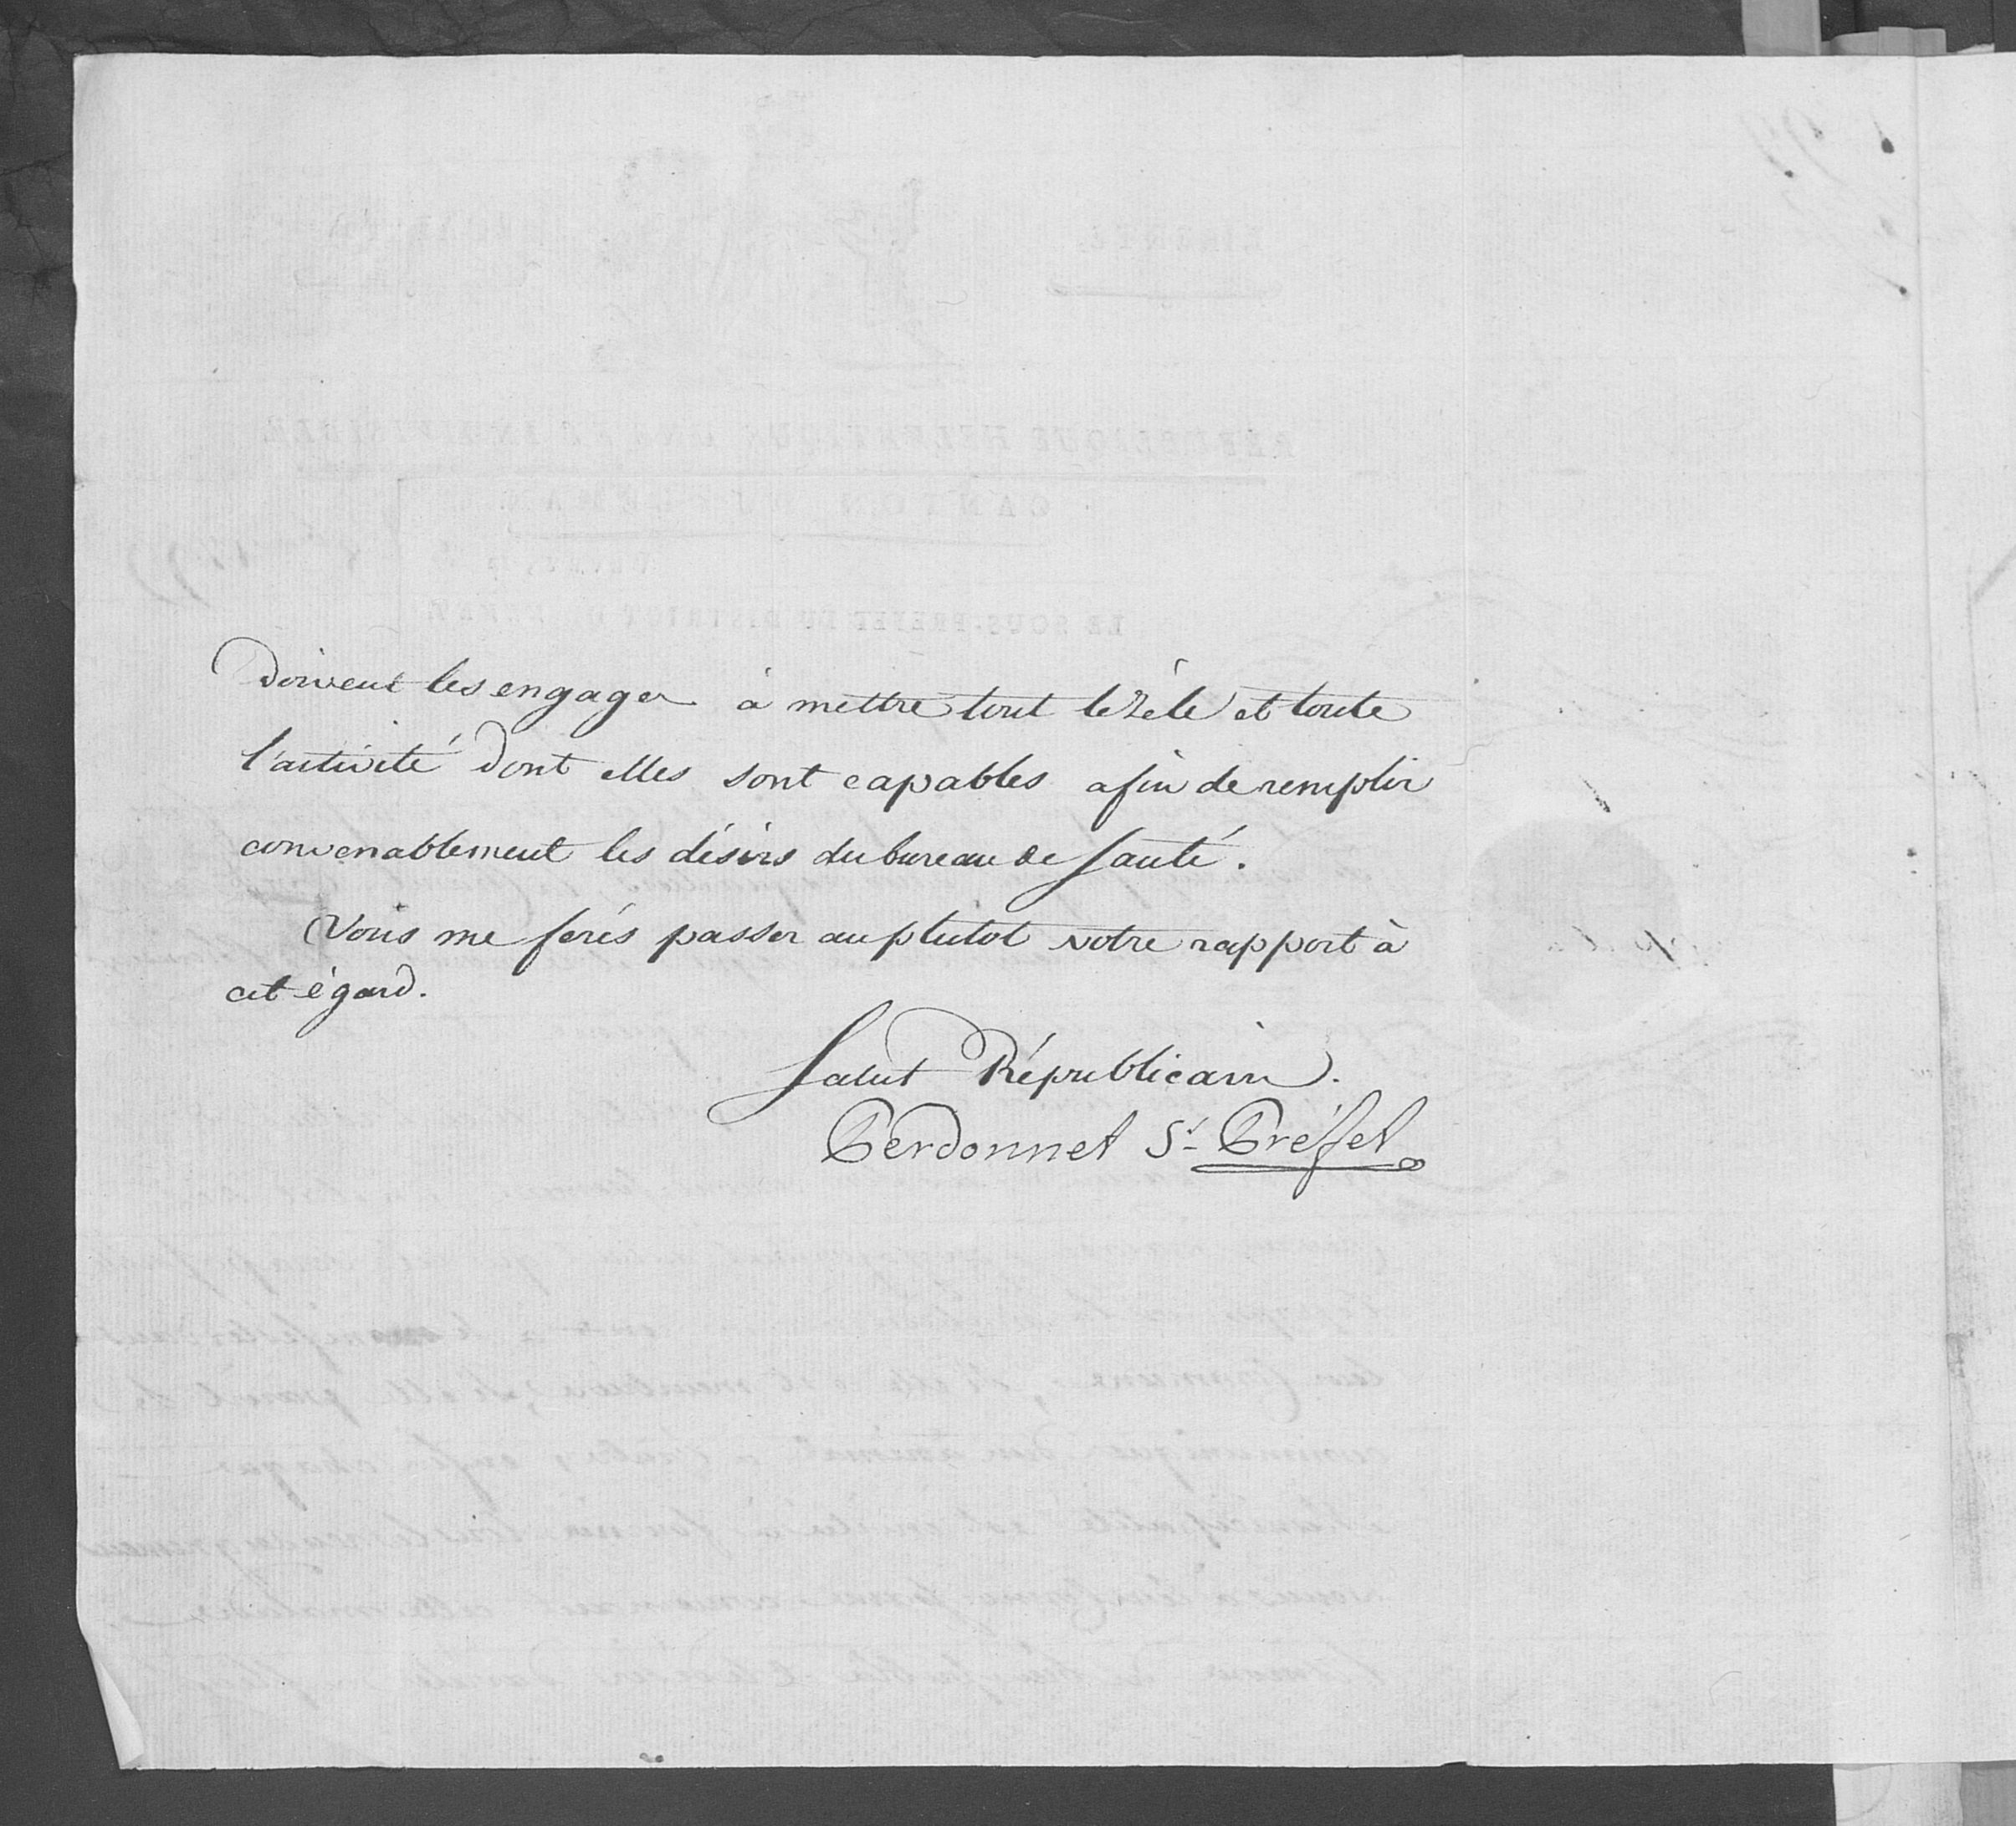 doivent les engager à mettre tout le zéle et toute
l'activité dont elles sont capables afin de remplir
convenablement les désirs du bureau de santé.
Vous me ferés passer au plutot votre rapport à
cet égard.
Salut Républicain.
Perdonnet S.t Préffet